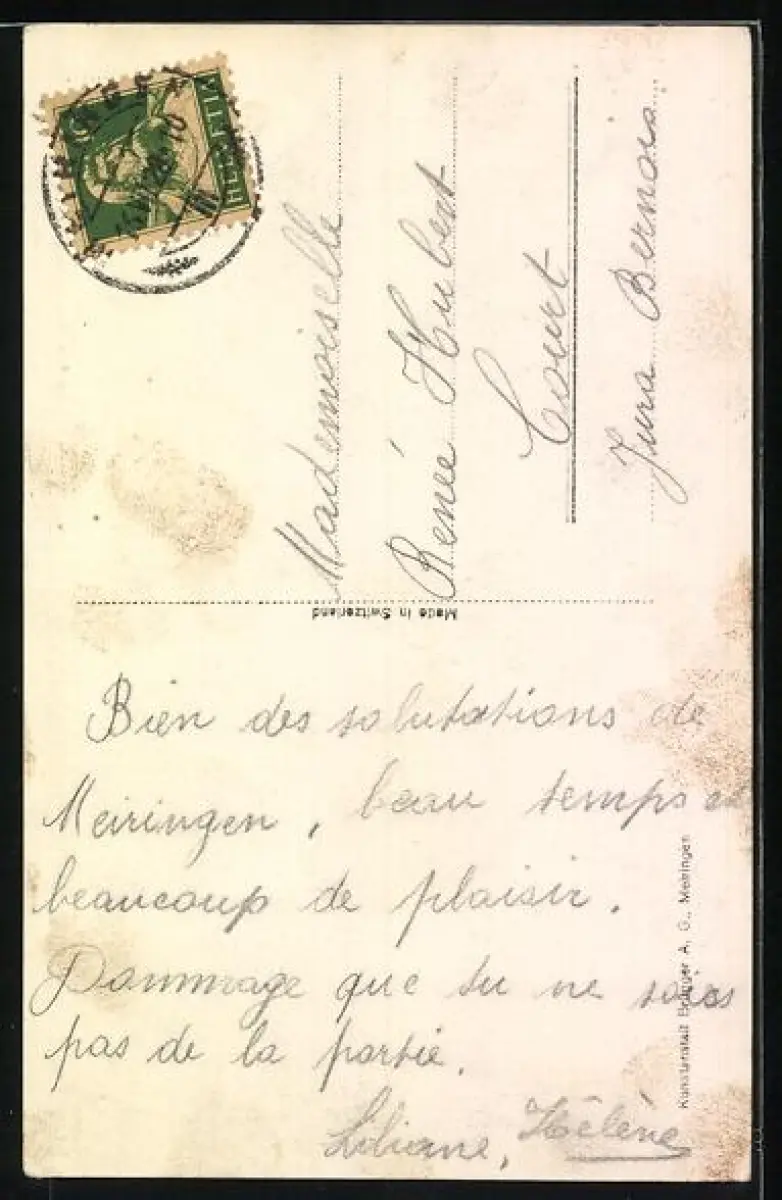 HELVETIA
10
Mademoiselle
Renée Hubert
Court
Jura Bernois
Made in Switzerland
Bien des salutations de
Meiringen, beau temps et
beaucoup de plaisir.
Dommage que tu ne sois
pas de la partie.
Liliane, Hélène
Kunstanstalt Brügger A. G., Meiringen